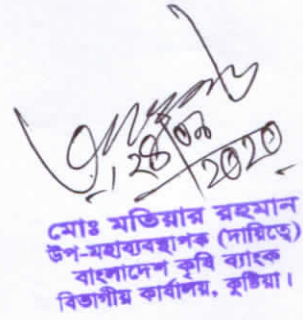 ২০২০
মোঃ মতিয়ার রহমান
উপ-মহাব্যবস্থাপক (দায়িত্বে)
বাংলাদেশ কৃষি ব্যাংক
বিভাগীয় কার্যালয়, কুষ্টিয়া।